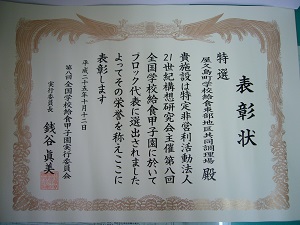 表彰状
特選
屋久島町学校給食東部地区共同調理場 殿
貴施設は特定非営利活動法人
21世紀構想研究会主催第八回
全国学校給食甲子園に於いて
ブロック代表に選出されました
よってその栄誉を称えここに
表彰します
平成二十五年十月十二日
第八回全国学校給食甲子園実行委員会
実行委員長 銭谷眞美